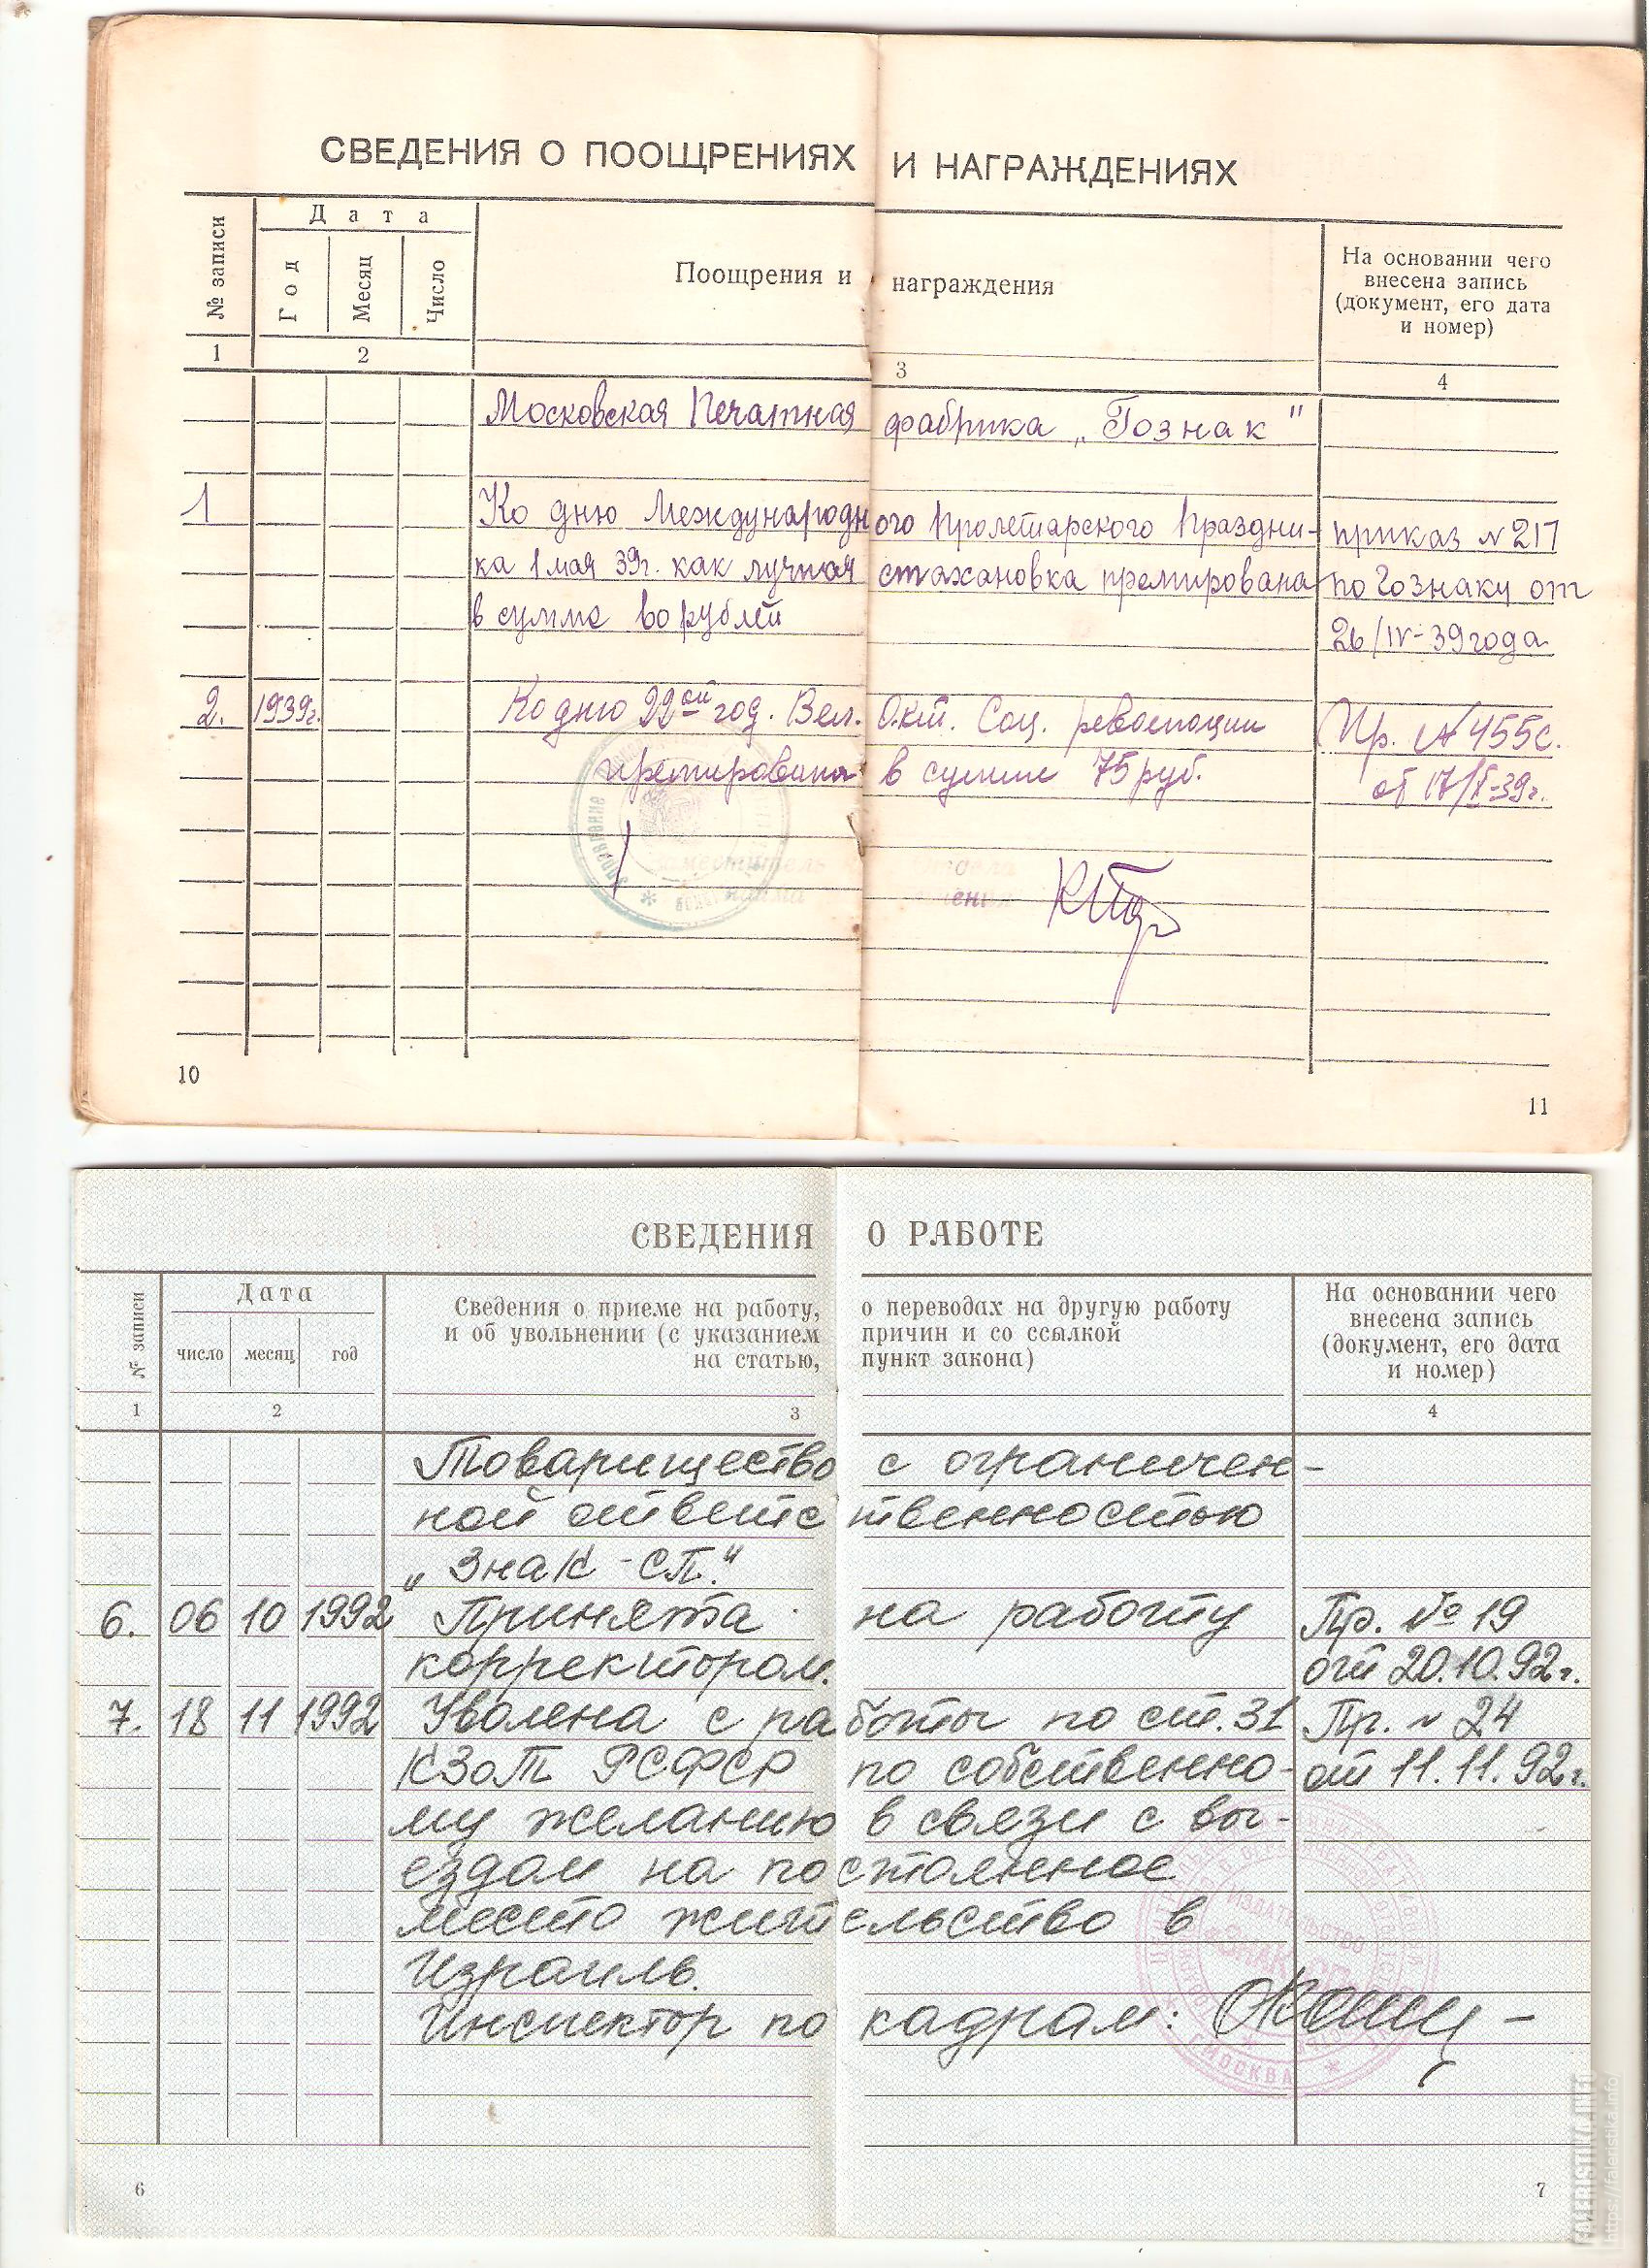 СВЕДЕНИЯ О ПООЩРЕНИЯХ И НАГРАЖДЕНИЯХ
№ записи
Дата
Год
Месяц
Число
Поощрения и награждения
На основании чего
внесена запись
(документ, его дата
и номер)
1 2 3 4
Московская Печатная фабрика „Гознак"
1 Ко дню Международного Пролетарского Праздни- приказ N 217
ка 1 мая 39г. как лучшая стахановка премирована по Гознаку от
в сумме рублей 26/IV-39 года
2. 1939г. Ко дню 22ой год. Вел. Окт. Соц. революции Пр. N 455с.
премирована в сумме 75 руб. от 17/X-39г.
Управление
10
11
СВЕДЕНИЯ О РАБОТЕ
№ записи
Дата
число месяц год
Сведения о приеме на работу, о переводах на другую работу
и об увольнении (с указанием причин и со ссылкой
на статью, пункт закона)
На основании чего
внесена запись
(документ, его дата
и номер)
1 2 3 4
Товарищество с ограничен-
ной ответственностью
„Знак-СП."
6. 06 10 1992 Принята на работу Пр. № 19
корректором. от 20.10.92г.
7. 18 11 1992 Уволена с работы по ст. 31 Пр. N 24
КЗоТ РСФСР по собственно- от 11.11.92г.
му желанию в связи с вы-
ездом на постоянное
место жительство в
Израиль.
Инспектор по кадрам:
ИЗДАТЕЛЬСТВО
МОСКВА
6
7
FALERISTIKA.INFO
https://faleristika.info